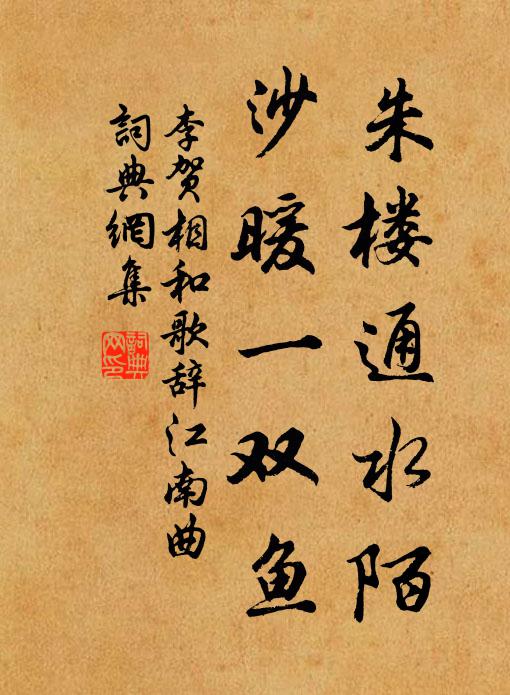 朱楼通水陌
沙暖一双鱼
李贺相和歌辞江南曲
詞典網集
詞典
网印